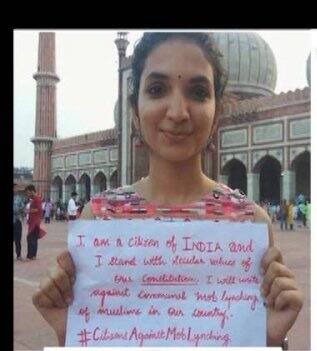 I am a citizen of INDIA and
I stand with secular values of
our Constitution. I will write
against communal mob lynching
of muslims in our country.
#CitizensAgainstMobLynching